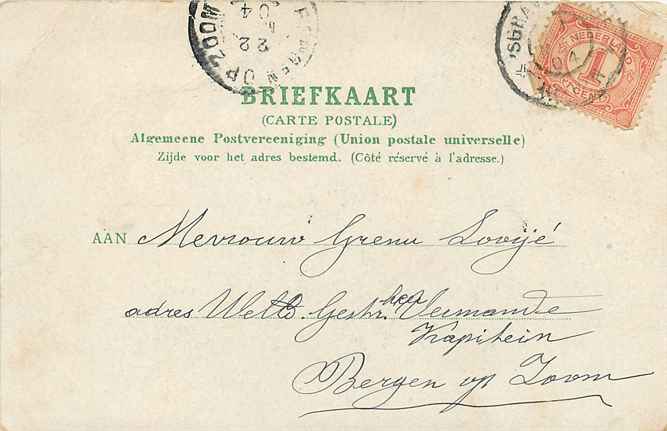 BERGEN OP ZOOM
22
04
'SGRAV
NEDERLAND
1
BRIEFKAART
(CARTE POSTALE)
Algemeene Postvereeniging (Union postale universelle)
Zijde voor het adres bestemd. (Côté réservé à l'adresse.)
AAN Mevrouw Grenu Looijé
adres Weled. Gestr. heer Vermande
Kapitein
Bergen op Zoom